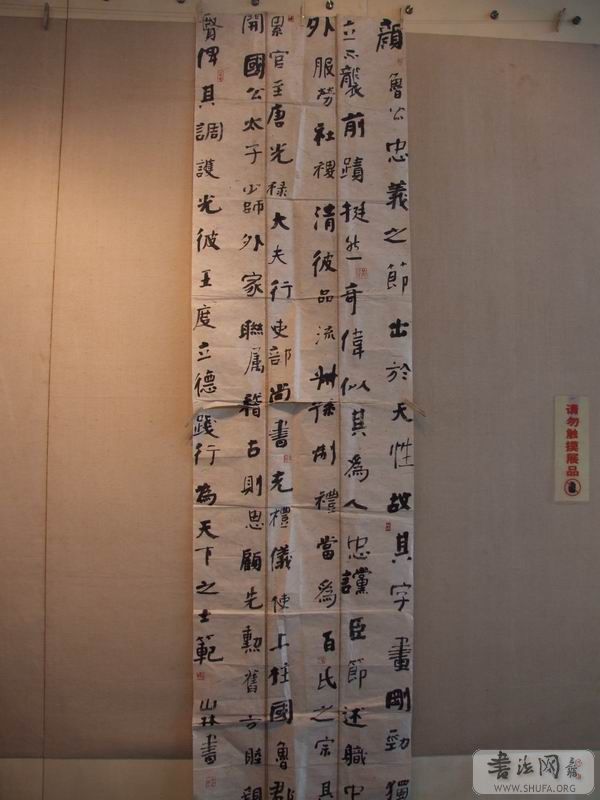 顔魯公忠義之節出於天性故其字畫剛勁獨
立不襲前蹟挺然奇偉似其為人忠讜臣節述職中
外服勞社稷清彼品流
禮當為百氏之宗其
累官至唐光禄大夫行吏部尚書充禮儀使上柱國魯郡
開國公太子少師外家聯属稽古則思顧先勲舊方睦親
賢俾其調護光彼王度立德踐行為天下之士範 山林書
请勿触摸展品
书法网
WWW.SHUFA.ORG